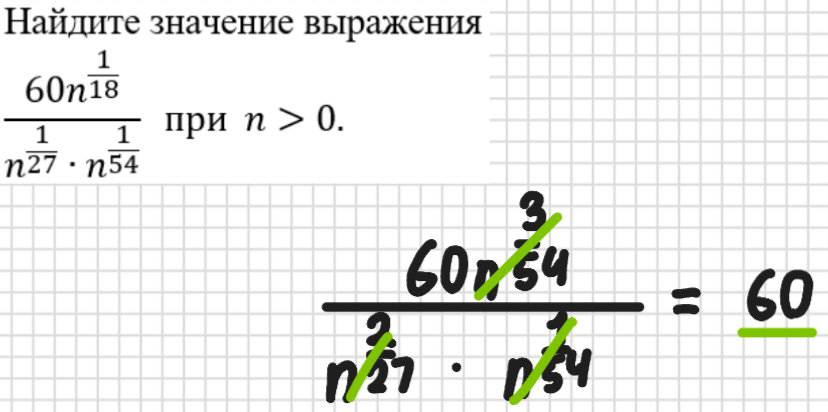 Найдите значение выражения
60n^(1/18) / (n^(1/27) · n^(1/54)) при n > 0.
60n^(3/54) / (n^(2/27) · n^(1/54)) = 60